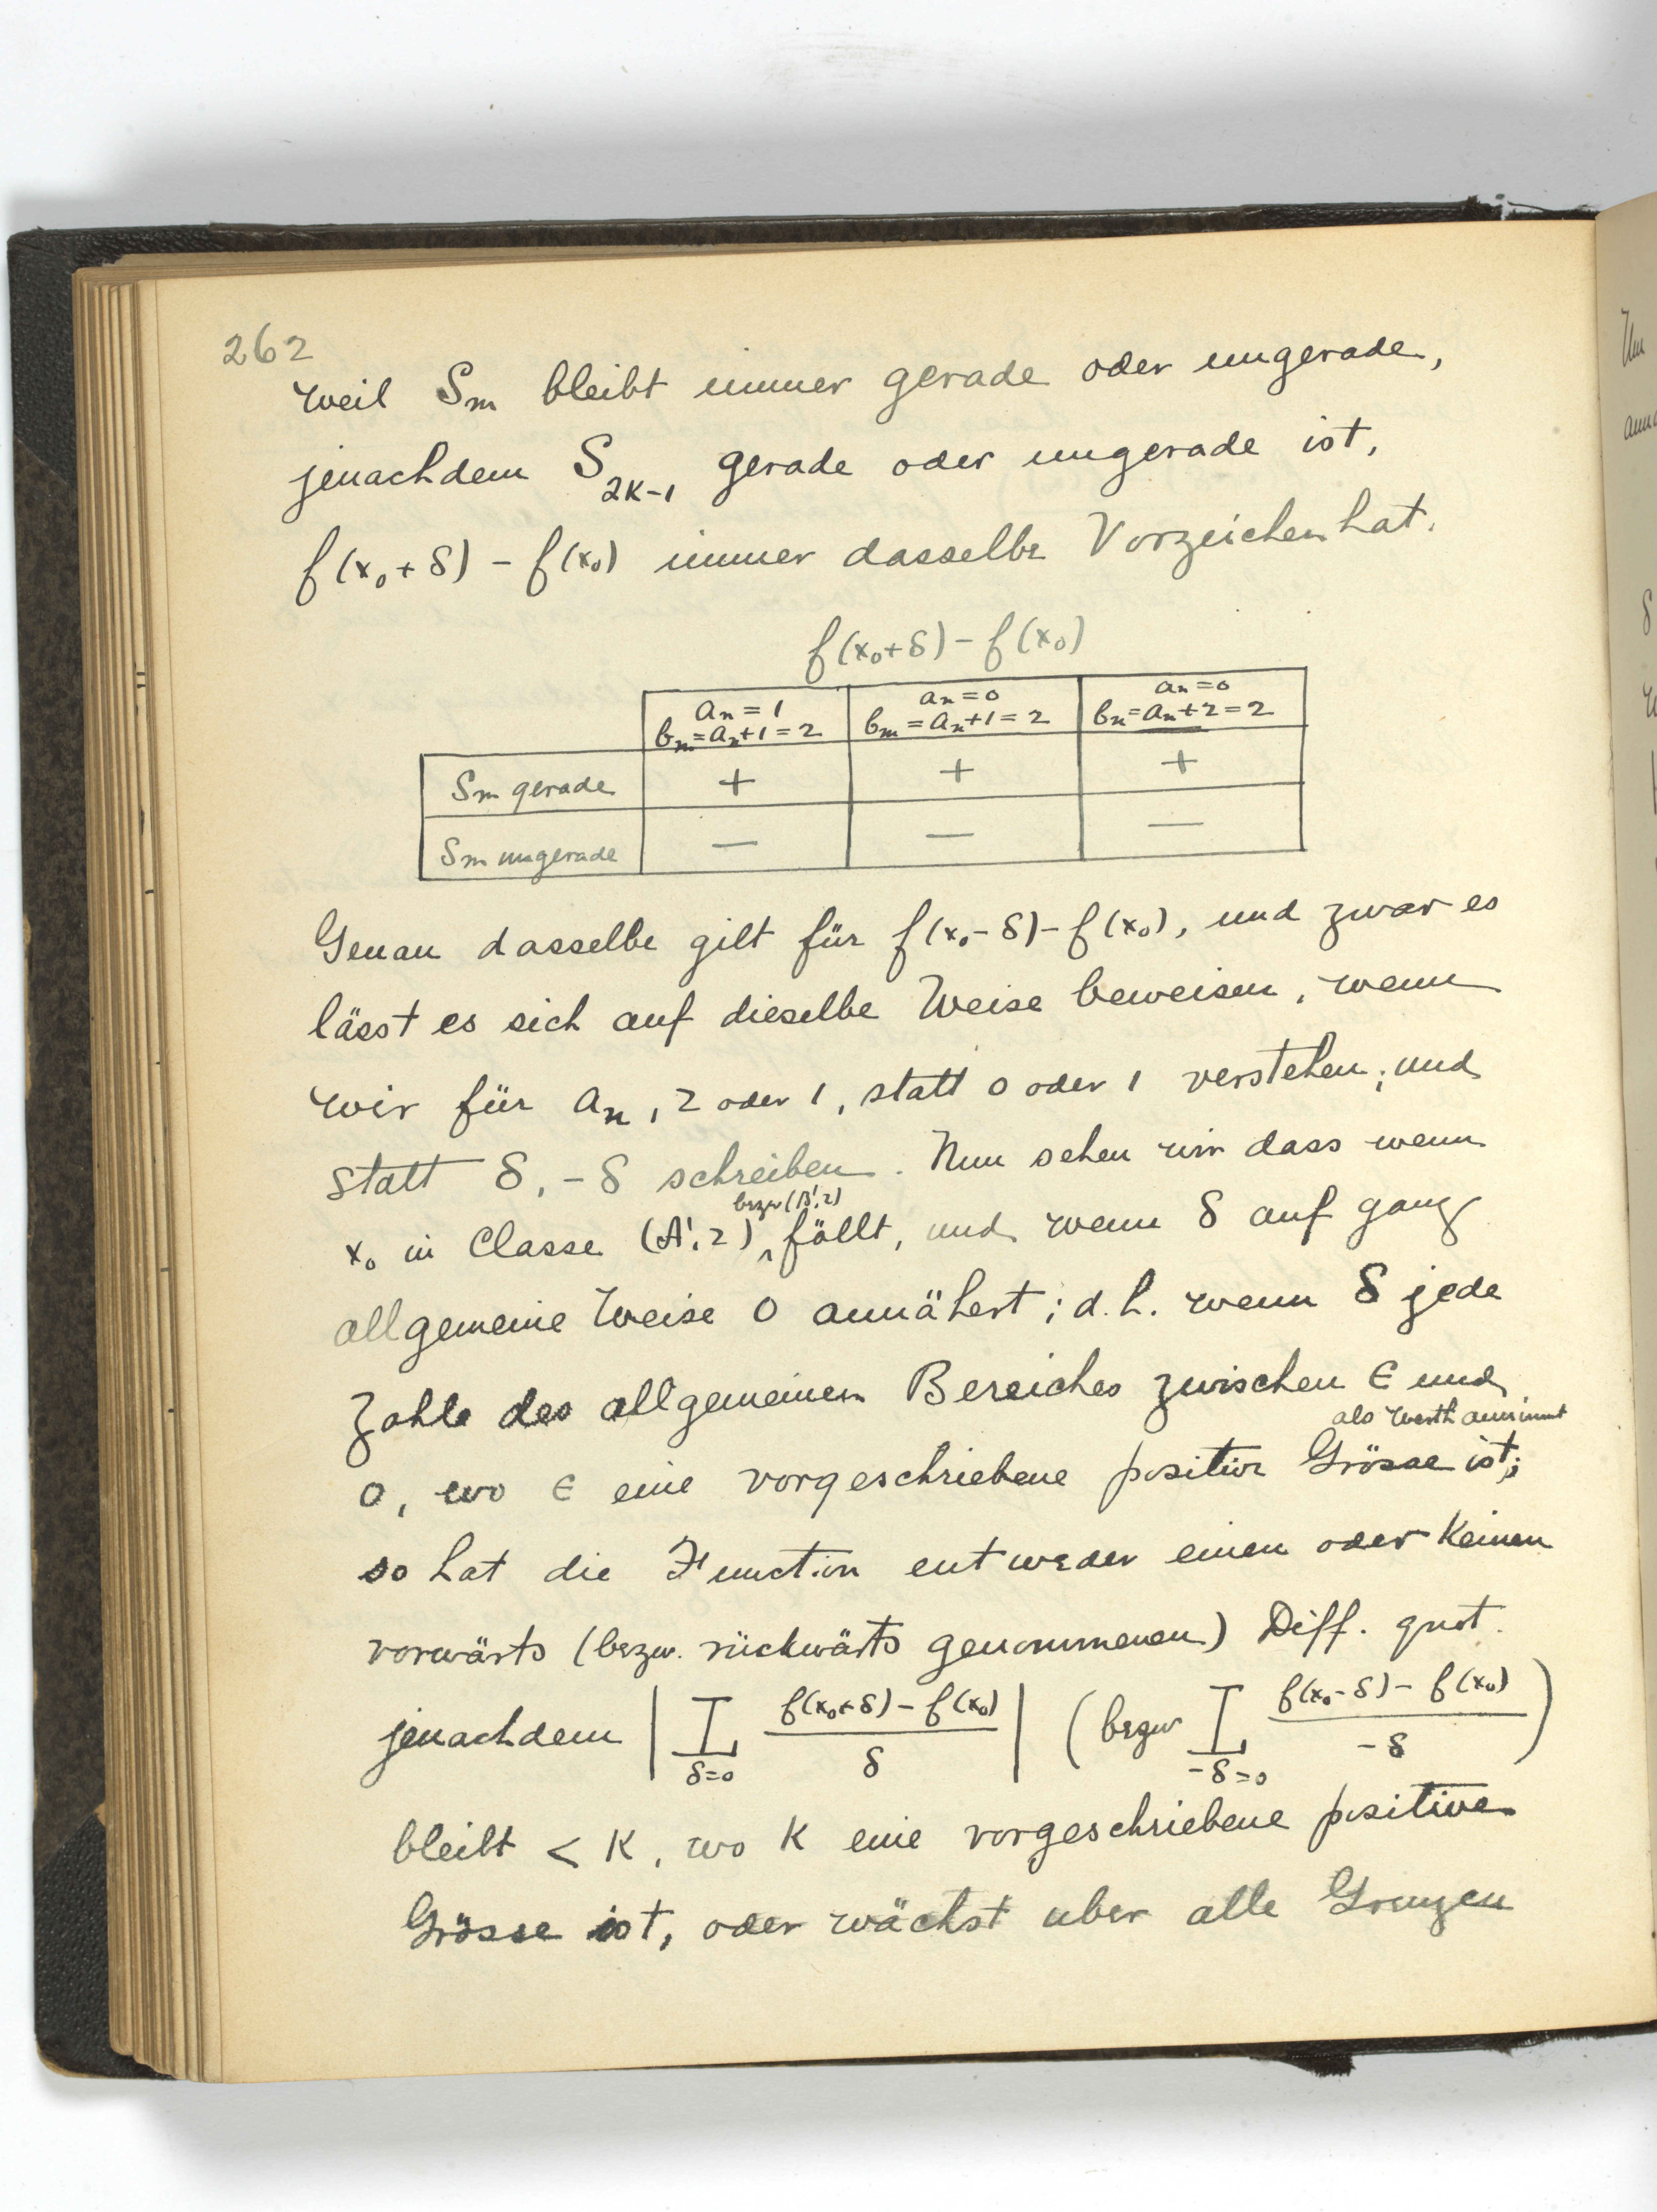 262
weil Sm bleibt immer gerade oder ungerade,
jenachdem S_{2K-1} gerade oder ungerade ist,
f(x₀+δ) - f(x₀) immer dasselbe Vorzeichen hat.
f(x₀+δ) - f(x₀)
aₙ = 1 aₙ = 0 aₙ = 0
bₘ = aₙ+1 = 2 bₘ = aₙ+1 = 2 bₙ = aₙ+2 = 2
Sm gerade + + +
Sm ungerade — — —
Genau dasselbe gilt für f(x₀-δ) - f(x₀), und zwar es
lässt es sich auf dieselbe Weise beweisen, wenn
wir für aₙ, 2 oder 1, statt 0 oder 1 verstehen; und
statt δ, -δ schreiben. Nun sehen wir dass wenn
bezw (B', 2)
x₀ in Classe (A', 2) ‸ fällt, und wenn δ auf ganz
allgemeine Weise 0 annähert; d.h. wenn δ jede
Zahle des allgemeinen Bereiches zwischen ϵ und
als Werth annimmt
0, wo ϵ eine vorgeschriebene positive Grösse ist;
so hat die Function entweder einen oder keinen
vorwärts (bezw. rückwärts genommenen) Diff. quot.
jenachdem | L_{δ=0} (f(x₀+δ) - f(x₀))/δ | (bezw L_{-δ=0} (f(x₀-δ) - f(x₀))/-δ )
bleibt < K, wo K eine vorgeschriebene positive
Grösse ist, oder wächst uber alle Grenzen